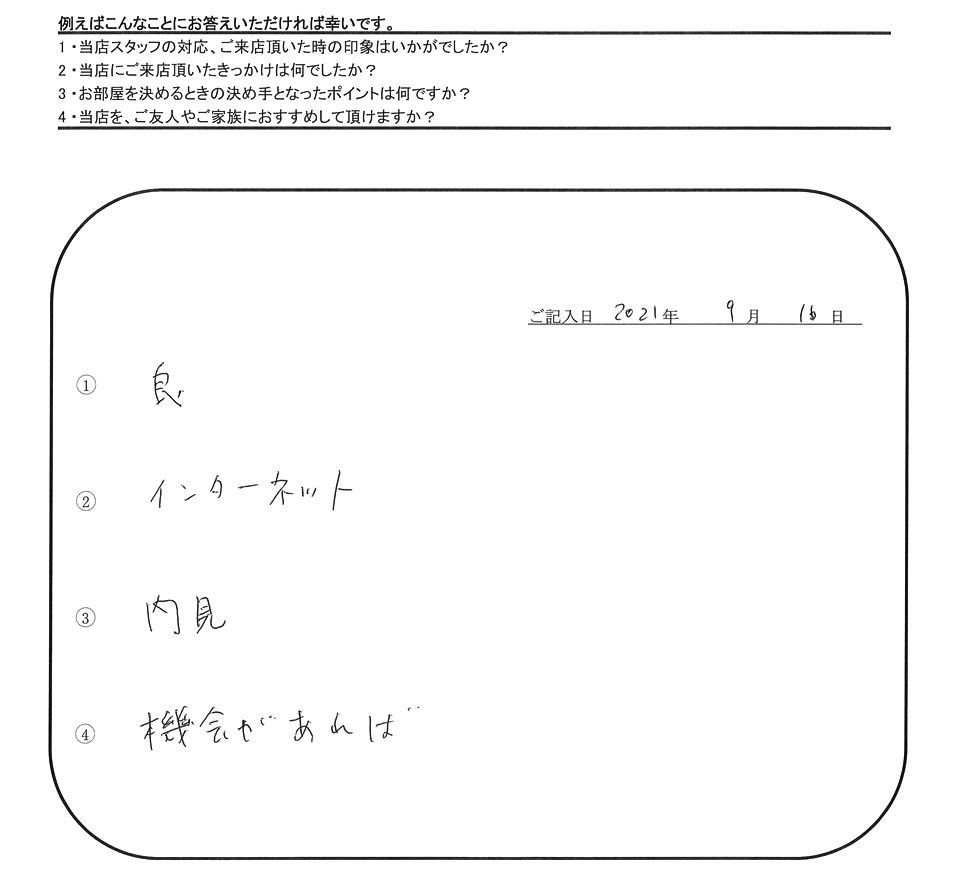 例えばこんなことにお答えいただければ幸いです。
1・当店スタッフの対応、ご来店頂いた時の印象はいかがでしたか？
2・当店にご来店頂いたきっかけは何でしたか？
3・お部屋を決めるときの決め手となったポイントは何ですか？
4・当店を、ご友人やご家族におすすめして頂けますか？
ご記入日 2021年 9月 16日
① 良
② インターネット
③ 内見
④ 機会があれば